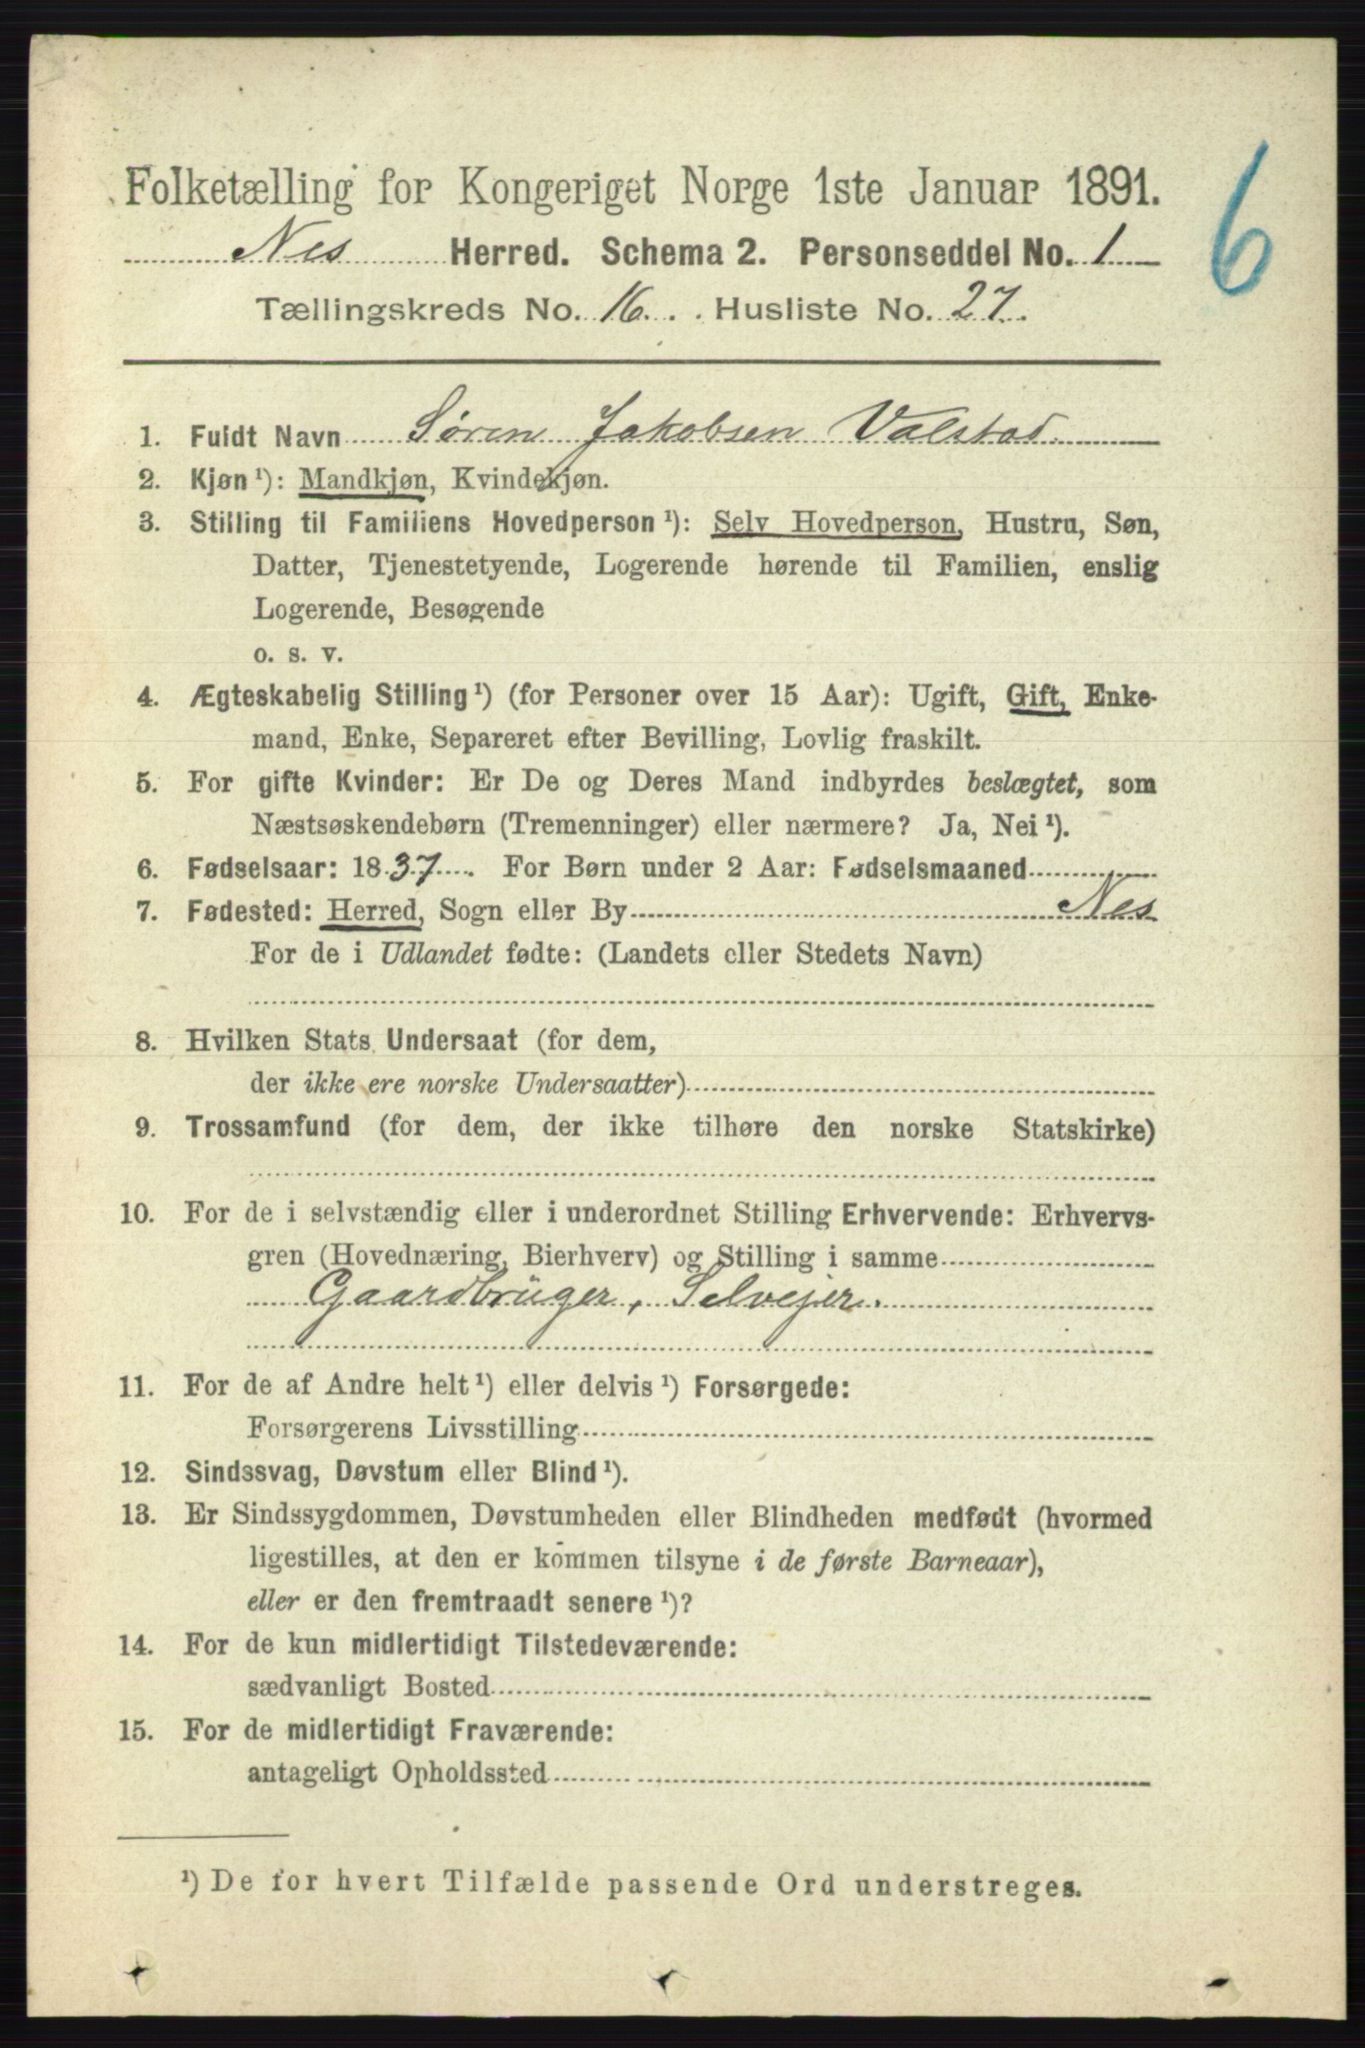 Folketælling for Kongeriget Norge 1ste Januar 1891.
6
Nes Herred. Schema 2. Personseddel No. 1
Tællingskreds No. 16. Husliste No. 27.
1. Fuldt Navn Søren Jakobsen Valstad
2. Kjøn ¹): Mandkjøn, Kvindekjøn.
3. Stilling til Familiens Hovedperson ¹): Selv Hovedperson, Hustru, Søn,
Datter, Tjenestetyende, Logerende hørende til Familien, enslig
Logerende, Besøgende
o. s. v.
4. Ægteskabelig Stilling ¹) (for Personer over 15 Aar): Ugift, Gift, Enke-
mand, Enke, Separeret efter Bevilling, Lovlig fraskilt.
5. For gifte Kvinder: Er De og Deres Mand indbyrdes beslægtet, som
Næstsøskendebørn (Tremenninger) eller nærmere? Ja, Nei ¹).
6. Fødselsaar: 1837. For Børn under 2 Aar: Fødselsmaaned
7. Fødested: Herred, Sogn eller By Nes
For de i Udlandet fødte: (Landets eller Stedets Navn)
8. Hvilken Stats Undersaat (for dem,
der ikke ere norske Undersaatter)
9. Trossamfund (for dem, der ikke tilhøre den norske Statskirke)
10. For de i selvstændig eller i underordnet Stilling Erhvervende: Erhvervs-
gren (Hovednæring, Bierhverv) og Stilling i samme
Gaardbrüger, Selvejer.
11. For de af Andre helt ¹) eller delvis ¹) Forsørgede:
Forsørgerens Livsstilling
12. Sindssvag, Døvstum eller Blind ¹).
13. Er Sindssygdommen, Døvstumheden eller Blindheden medfødt (hvormed
ligestilles, at den er kommen tilsyne i de første Barneaar),
eller er den fremtraadt senere ¹)?
14. For de kun midlertidigt Tilstedeværende:
sædvanligt Bosted
15. For de midlertidigt Fraværende:
antageligt Opholdssted
¹) De for hvert Tilfælde passende Ord understreges.